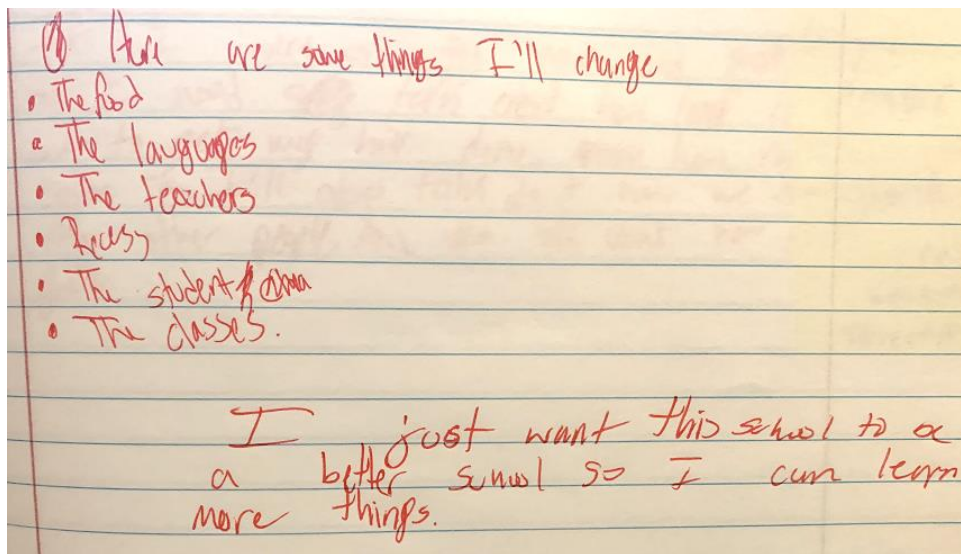 ① Here are some things I'll change
• The food
• The languages
• The teachers
• Recess
• The student
• The classes.
I just want this school to a
a better school so I can learn
more things.